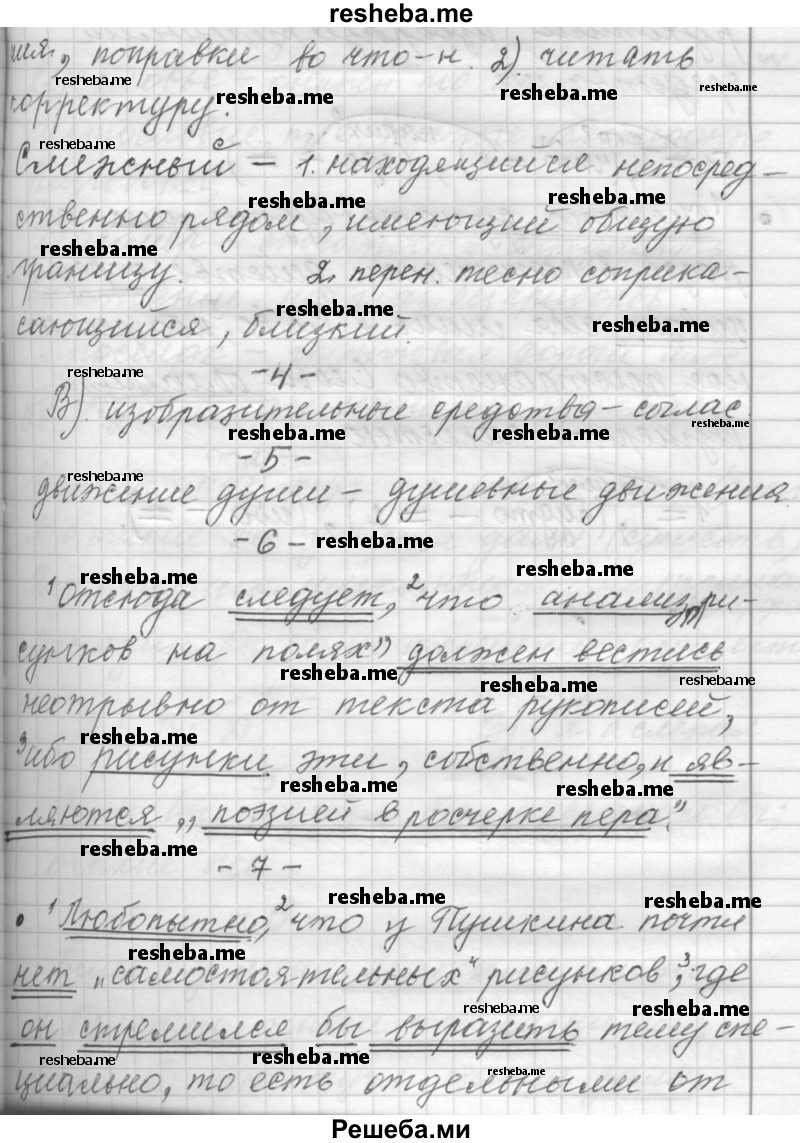 resheba.me
ния, поправки во что-н. 2). читать
корректуру.
Смежный – 1. находящийся непосред–
ственно рядом, имеющий общую
границу. 2. перен. тесно соприка–
сающийся, близкий.
-4-
В). изобразительные средства – соглас.
-5-
движение души – душевные движения.
-6-
¹Отсюда следует, ²что анализ "ри–
сунков на полях" должен вестись
неотрывно от текста рукописей,
³ибо рисунки эти, собственно, и яв–
ляются „поэзией в росчерке пера."
-7-
• ¹Любопытно, ²что у Пушкина почти
нет „самостоятельных" рисунков, ³где
он стремился бы выразить тему спе–
циально, то есть отдельными от
Решеба.ми